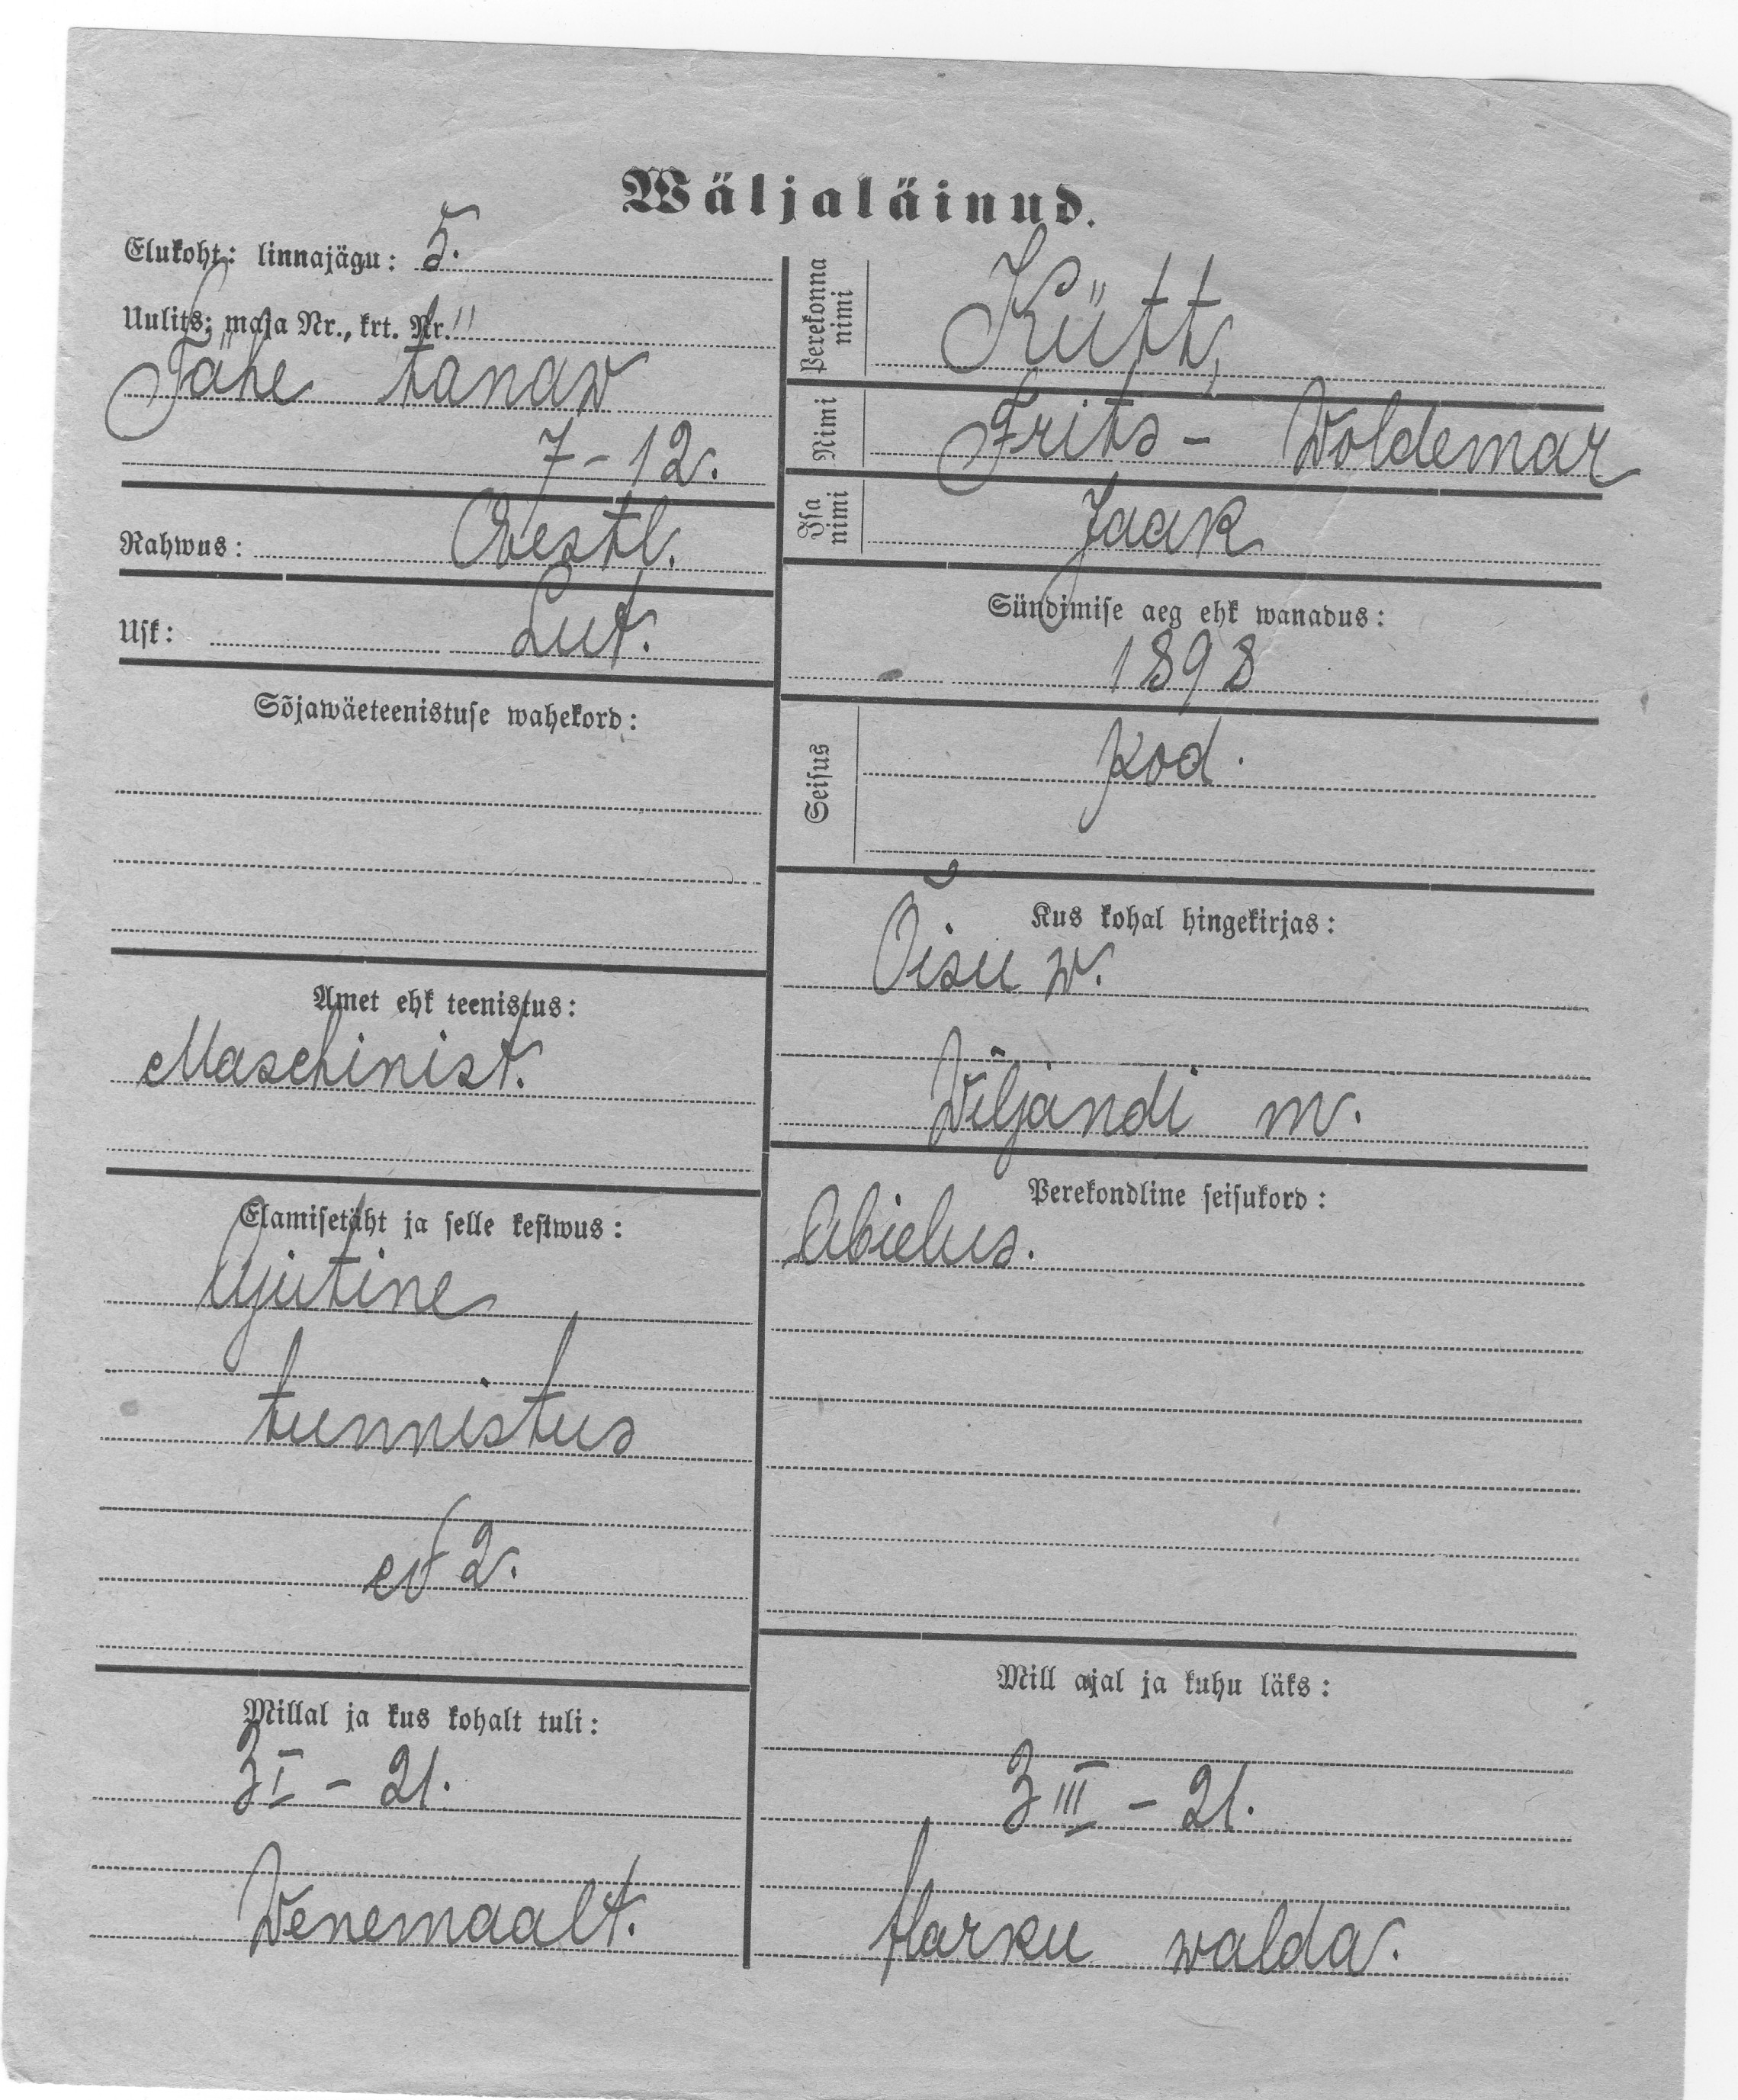 Wäljaläinud.
Elukoht: linnajägu: 5.
Uulits; maja Nr., krt. Nr.
Tähe tänaw
7-12.
Rahwus: Eestl.
Usk: Lut.
Sõjawäeteenistuse wahekord:
Amet ehk teenistus:
Maschinist.
Elamisetäht ja selle kestwus:
Ajutine
tunnistus
№ 2.
Millal ja kus kohalt tuli:
3 I - 21.
Wenemaalt.
Perekonna nimi Kütt,
Nimi Frits- Woldemar
Isa nimi Jaak
Sündimise aeg ehk wanadus:
1898
Seisus kod.
Kus kohal hingekirjas:
Õisu w.
Wiljandi m.
Perekondline seisukord:
Abielus.
Mill ajal ja kuhu läks:
3 III - 21.
Harku walda.